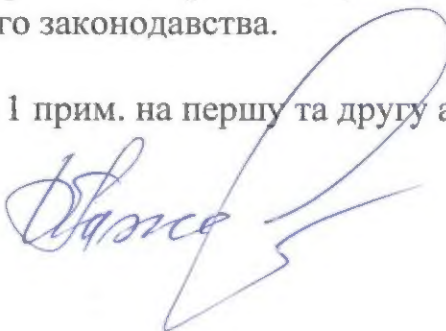 го законодавства.
1 прим. на першу та другу а